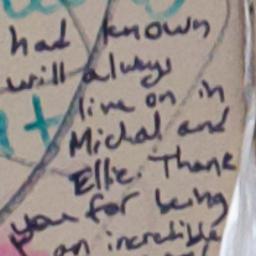 had known
will always
live on in
Michal and
Ellie. Thank
you for being
an incredible